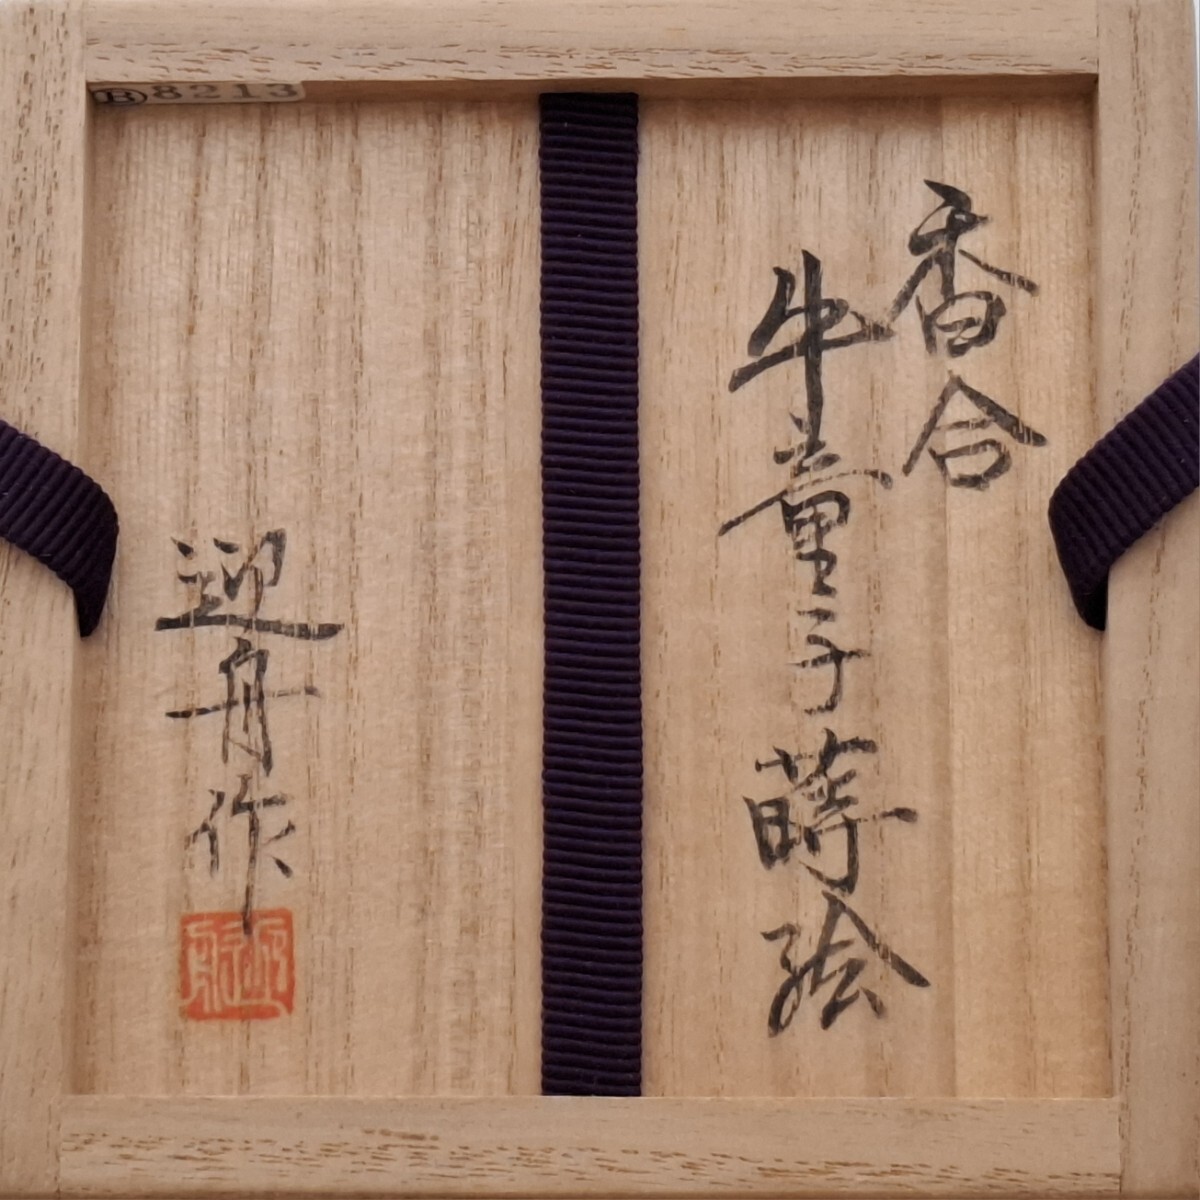 香合
牛童子蒔絵
迎舟作
迎舟
Ⓑ8213